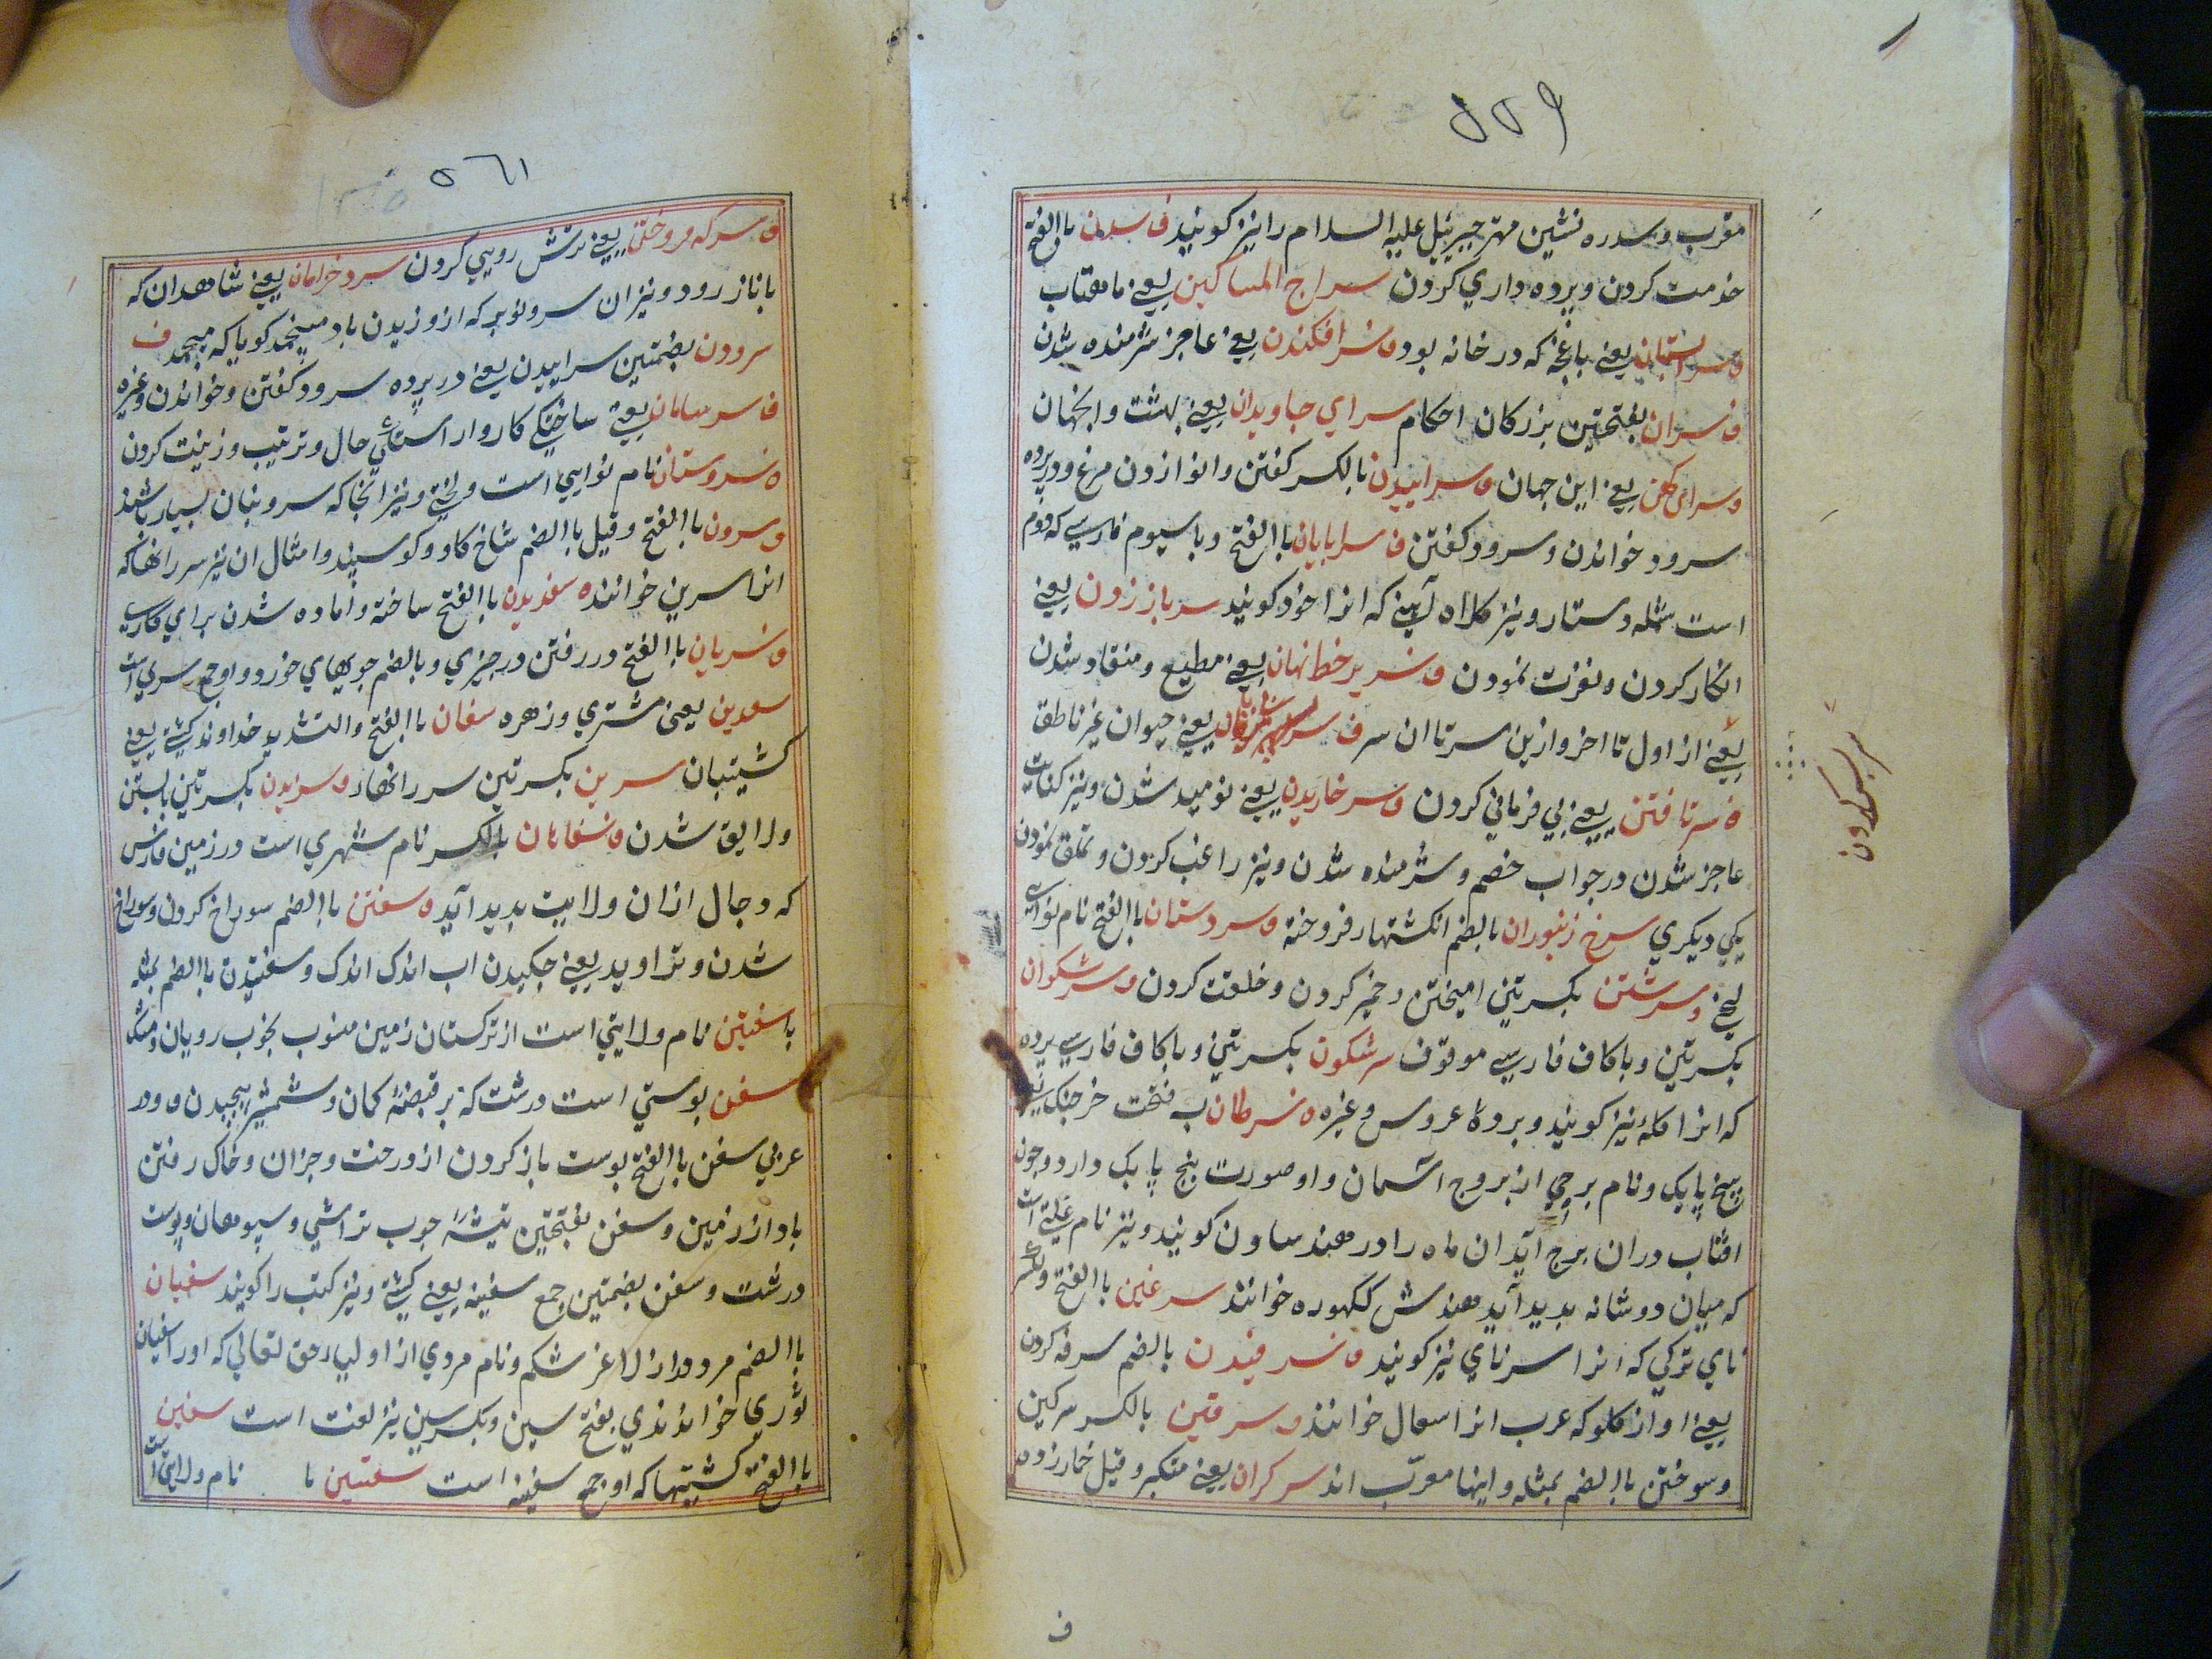 ۵۵۹
مقرب و سدره نشین مهتر جبرئیل علیه السلام را نیز کویند ف سدن باالفتح
خدمت کردن و پرده داري کردن سراج المساکین یعنے ماهتاب
ف سرابستان یعنے باغچه که در خانه بود ف سرافکندن یعنے عاجز شرمنده شدن
ف سران بفتحتین بزرکان احکام سراي جاویدان یعنے بهشت و انجهان
و سراي کهن یعنے این جهان ف سراییدن بالکسر کفتن و انواز دن مرغ و در پرده
سرود خواندن و سرود کفتن ف سراپایان باالفتح و با سیوم فارسے که دوم
است شله دستار و نیز کلاه آهنے که انرا خود کویند سر باز زدن یعنے
انکار کردن و نفرت نمودن ف سر بر خط نهان یعنے مطیع و منقاد شدن
یعنے از اول تا اخر و ازین سر تا ان سر ف یعنے حیوان غیر ناطق
ف سر تافتن یعنے بي فرماني کردن ف سر خاریدن یعنے نومید شدن و نیز کفایت
عاجز شدن در جواب خصم و شرمنده شدن و نیز راغب کردن و تملق نمودن
یکي دیکري سرخ زنبوران بالضم انکشتهار فروخته ف سردستان باالفتح نام نوای
لحنے و سرشتن بکسرتین امیختن و خمیر کردن و خلقت کردن ف سرشکوان
بکسرتین و با کاف فارسے موقوف سرشکون بکسرتین و با کاف فارسے پرده
که انرا کله نیز کویند و پرده عروس و غیره ف سرطان ب فتحت خرچنک یعنے
پنج پایک و نام برجي از بروج اسمان و او صورت پنج پایک دارد و چون
افتاب در ان برج آید ان ماه را در هند ساون کویند و نیز نام علتے است
که میان دو شانه بدید آید هندش ککهوره خوانند سرغین باالفتح و بالکسر
ناي ترکي که انرا سرناي نیز کویند ف سرفیدن بالضم سرفه کردن
یعنے اواز کلو که عرب انرا سعال خوانند و سرقین بالکسر سرکین
و سوختن باالضم بمثله و اینها معرّب اند سرکران یعنے متکبر و قیل خمار زده
ف
سر سبز کردن
۵۶۱
ف سرکه فروختن یعنے ترش رویي کردن سرو خرامان یعنے شاهدان که
با ناز رود و نیز ان سرو نوبر که از وزیدن باد میخمد کویا که میجمد ف
سرودن بضمتین سراییدن یعنے در پرده سرود کفتن و خواندن و غیره
ف سرسامان یعنے ساختکي کار و اراستکي حال و ترتیب و زینت کردن
ف سروستان نام نوایي است و لحنے و نیز انجا که سرو بنان بسیار باشند
ف سرون باالفتح و قیل باالضم شاخ کاو و کوسپند و امثال ان نیز سر رانها که
انرا سرین خوانند ف سغدیدن باالفتح ساخته و اماده شدن براي کاري
ف سریان باالفتح در رفتن در چیزي و بالضم جویهاي خورد و او جمع سري است
سعدین یعنی مشتري و زهره سفان باالفتح والتشدید خداوند کشتے یعنے
کشتیبان سرین بکسرتین سر رانها ف سزیدن بکسرتین بایستن
و لایق شدن ف سفاهان بالکسر نام شهري است در زمین فارس
که دجال از ان ولایت بدید آید ف سفتن باالضم سوراخ کردن و سوراخ
شدن و تراوید یعنے چکیدن اب اندک اندک و سفتیدن باالضم بمثله
باسفتین نام ولایتي است از ترکستان زمین منسوب بخوب رویان و مشک
سفن پوستي است درشت که بر قبضهٔ کمان و شمشیر پیچیدن و در
عربي سفن باالفتح پوست باز کردن از درخت و جزان و خاک رفتن
باد از زمین و سفن بفتحتین تیشهٔ چوب تراشي و سپوهان و پوست
درشت و سفن بضمتین جمع سفینه یعنے کشتے و نیز کتب را کویند سفیان
باالضم مرد دراز لاغر شکم و نام مردي از اولیا رحق تعالی که اورا سفیان
ثوري خوانندي بفتح سین و بکسر سین نیز لغت است سفین
باالفتح کشتیها که او جمع سفینه است سفتین با نام ولایتي است